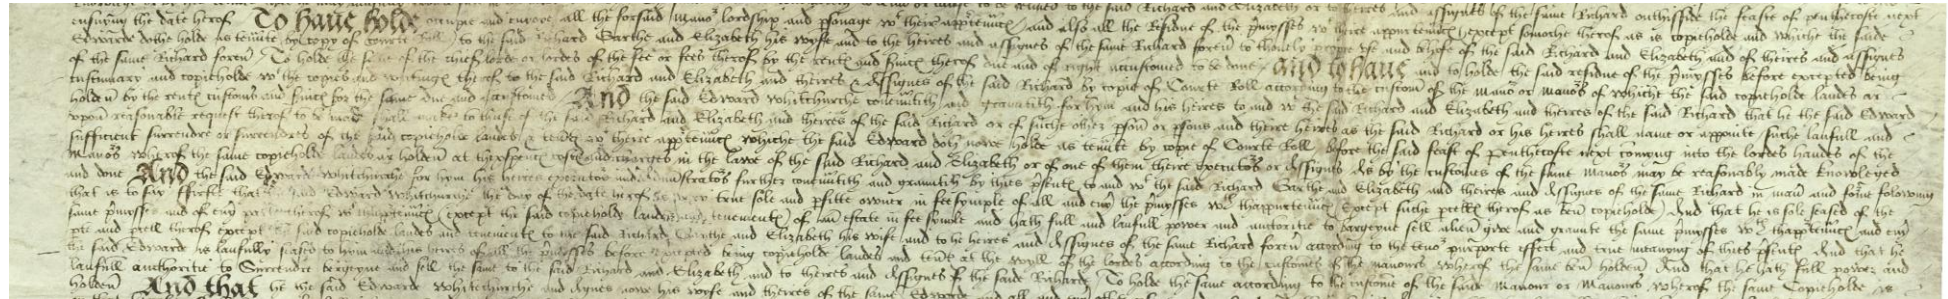 ensuyng the date herof To haue holde occupie and enioye all the forsaid Mano lordship and psonage wt there apprtenncs and also all the Residue of the pmysses wt there appurtenncs except somoche therof as is copieholde and whiche the saide
Edwarde dothe holde as tennte by copy of courte Roll to the said Richard Garthe and Elizabeth his wyfe and to the heires and assignes of the same Richard foreu to thonely propre vse and behofe of the said Richard and Elizabeth and of theires and assignes
of the same Richard foreu To holde the same of the chief lorde or lordes of the fee or fees therof by the rents and suics therof due and of right accustomed to be done And to haue and to holde the said residue of the pmysses before excepted being
customary and copieholde wt the copies and writings therof to the said Richard and Elizabeth and theires & Assignes of the said Richard by copie of Courte Roll according to the custom of the Mano or Manos of whiche the said copieholde landes ar
holden by the rents customs and suics for the same due and accustomed And the said Edward Whitchurche couenntith and grauntith for hym and his heires to and wt the said Richard and Elizabeth and theires of the said Richard that he the said Edward
vpon reasonable request therof to be made shall make to thuse of the said Richard and Elizabeth and theires of the said Richard or of suche other pson or psons and there heires as the said Richard or his heires shall name or appointe suche laufull and
sufficient surrendre or surrendres of the said copieholde landes & tentes wt there apprtenncs whiche the said Edward doth nowe holde as tennte by copie of Courte Roll before the said feast of Penthecoste next comyng into the lordes handes of the
Manos wherof the same copieholde landes ar holden at thexpencs costes and charges in the lawe of the said Richard and Elizabeth or of one of them there executos or Assignes As by the customes of the same Manos may be reasonably made knowleged
and done And the said Edward Whitchurche for hym his heires executos and admistratos further couenntith and grauntith by thies psents to and wt the said Richard Garthe and Elizabeth and theires and Assignes of the same Richard in man and forme folowing
that is to say ffirste that the said Edward Whitchurche the day of the date herof is very true sole and pfitte owner in fee symple of all and eny the pmysses wt thappurtenncs Except suche pcells therof as ben copieholde And that he is sole seased of the
same pmysses and of euy pte therof wt thapprtenncs (except the said copieholde landes and tenements) of an estate in fee symple and hath full and laufull power and auctoritie to bargeyne sell alien giue and graunte the same pmysses wt thapprtenncs and euy
pte and pcell therof except the said copieholde landes and tenements to the said Richard Garthe and Elizabeth his wife and to he heires and Assignes of the same Richard foreu according to the teno purporte effect and true meanyng of thies psents And that he
the said Edward is laufully seased to hym and his heires of all the pmysses before excepted being copieholde landes and tents at the wyll of the lordes according to the customes of the manours wherof the same ben holden And that he hath full power and
laufull authoritie to Surrendre bargeyne and sell the same to the said Richard and Elizabeth and to theires and Assignes of the said Richard To holde the same according to the custome of the same Manour or Manours wherof the same Copieholde is
holden And that he the said Edward Whitchurche and Agnes nowe his wyfe and theires of the same Edward and all and